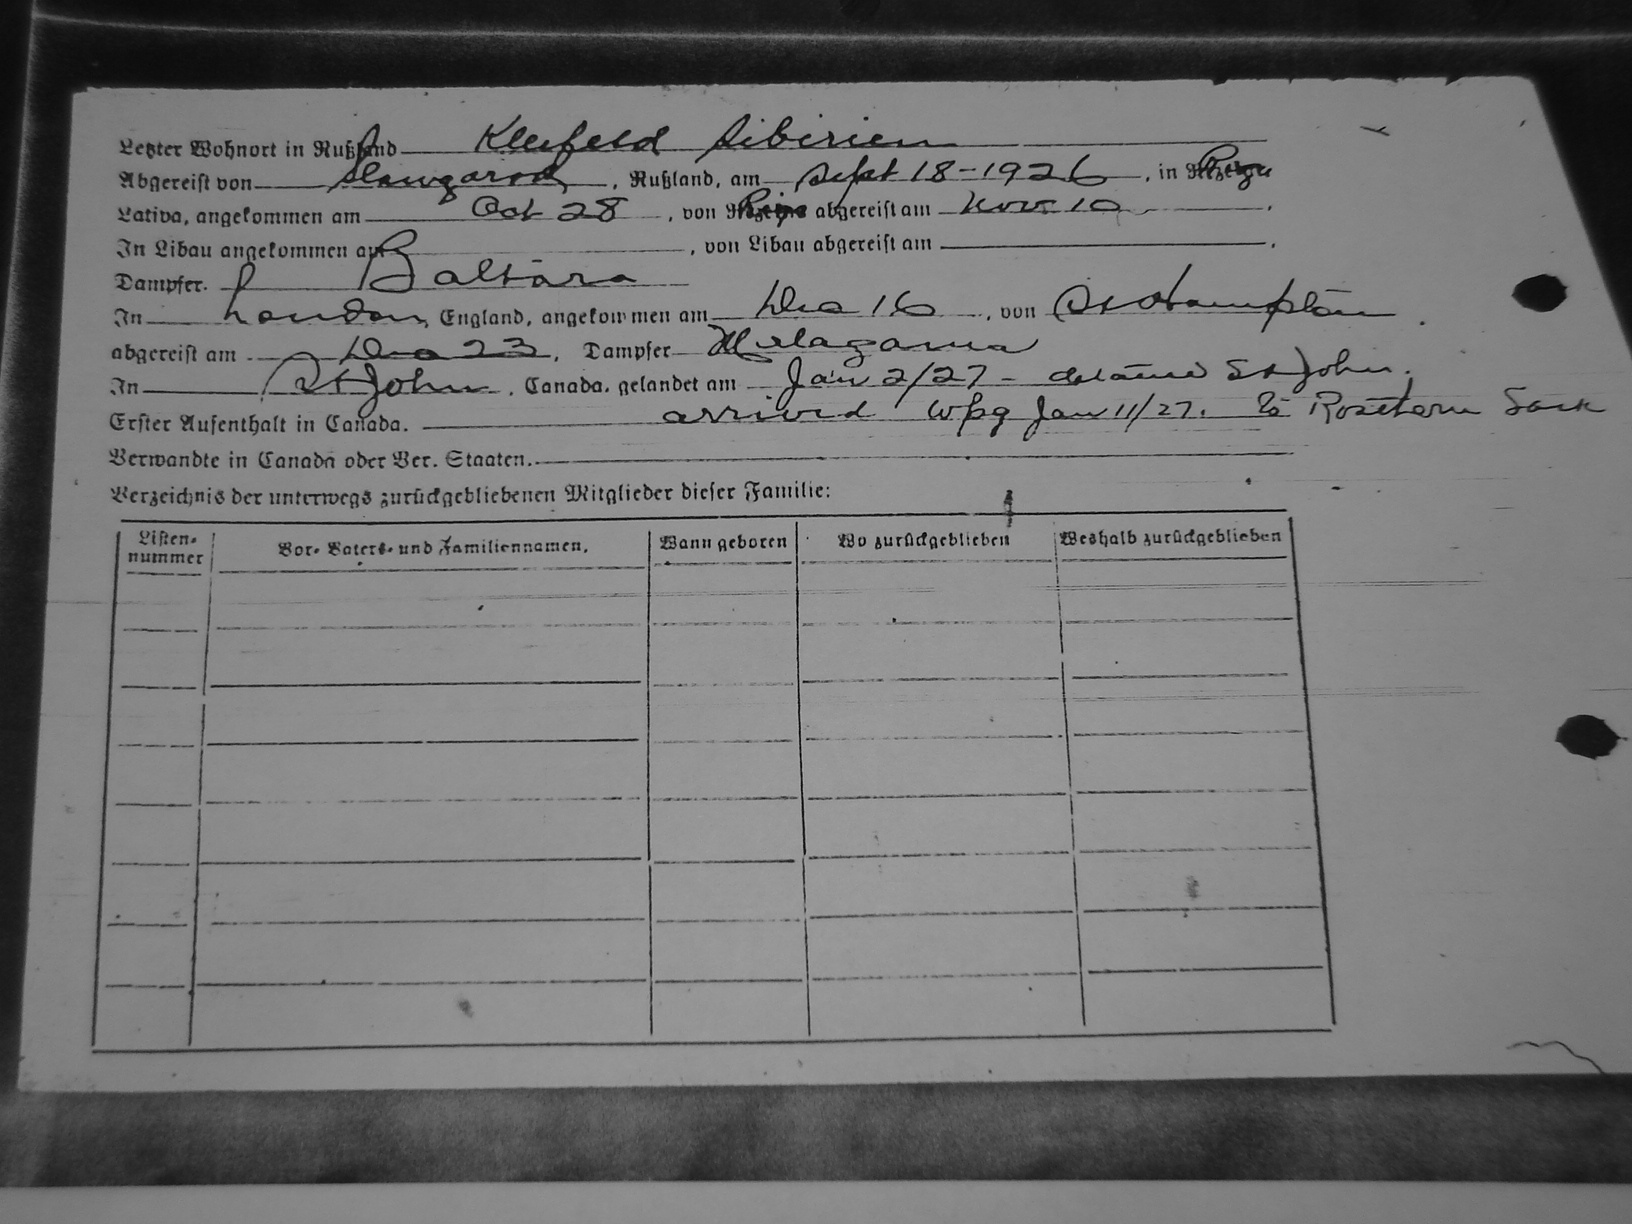 Letzter Wohnort in Rußland Kleefeld Sibirien
Abgereist von Slawgorod, Rußland, am Sept 18-1926, in Riga
Lativa, angekommen am Oct 28, von Riga abgereist am Nov. 10.
In Libau angekommen am, von Libau abgereist am.
Dampfer. Baltara
In London, England, angekommen am Dec 16, von Southampton.
abgereist am Dec 23, Dampfer Melagama
In St John, Canada, gelandet am Jan 2/27 - detained St John.
Erster Aufenthalt in Canada. arrived Wpg Jan 11/27. to Rosthern Sask
Verwandte in Canada oder Ver. Staaten.
Verzeichnis der unterwegs zurückgebliebenen Mitglieder dieser Familie:
Listen-nummer Vor- Vaters- und Familiennamen. Wann geboren Wo zurückgeblieben Weshalb zurückgeblieben